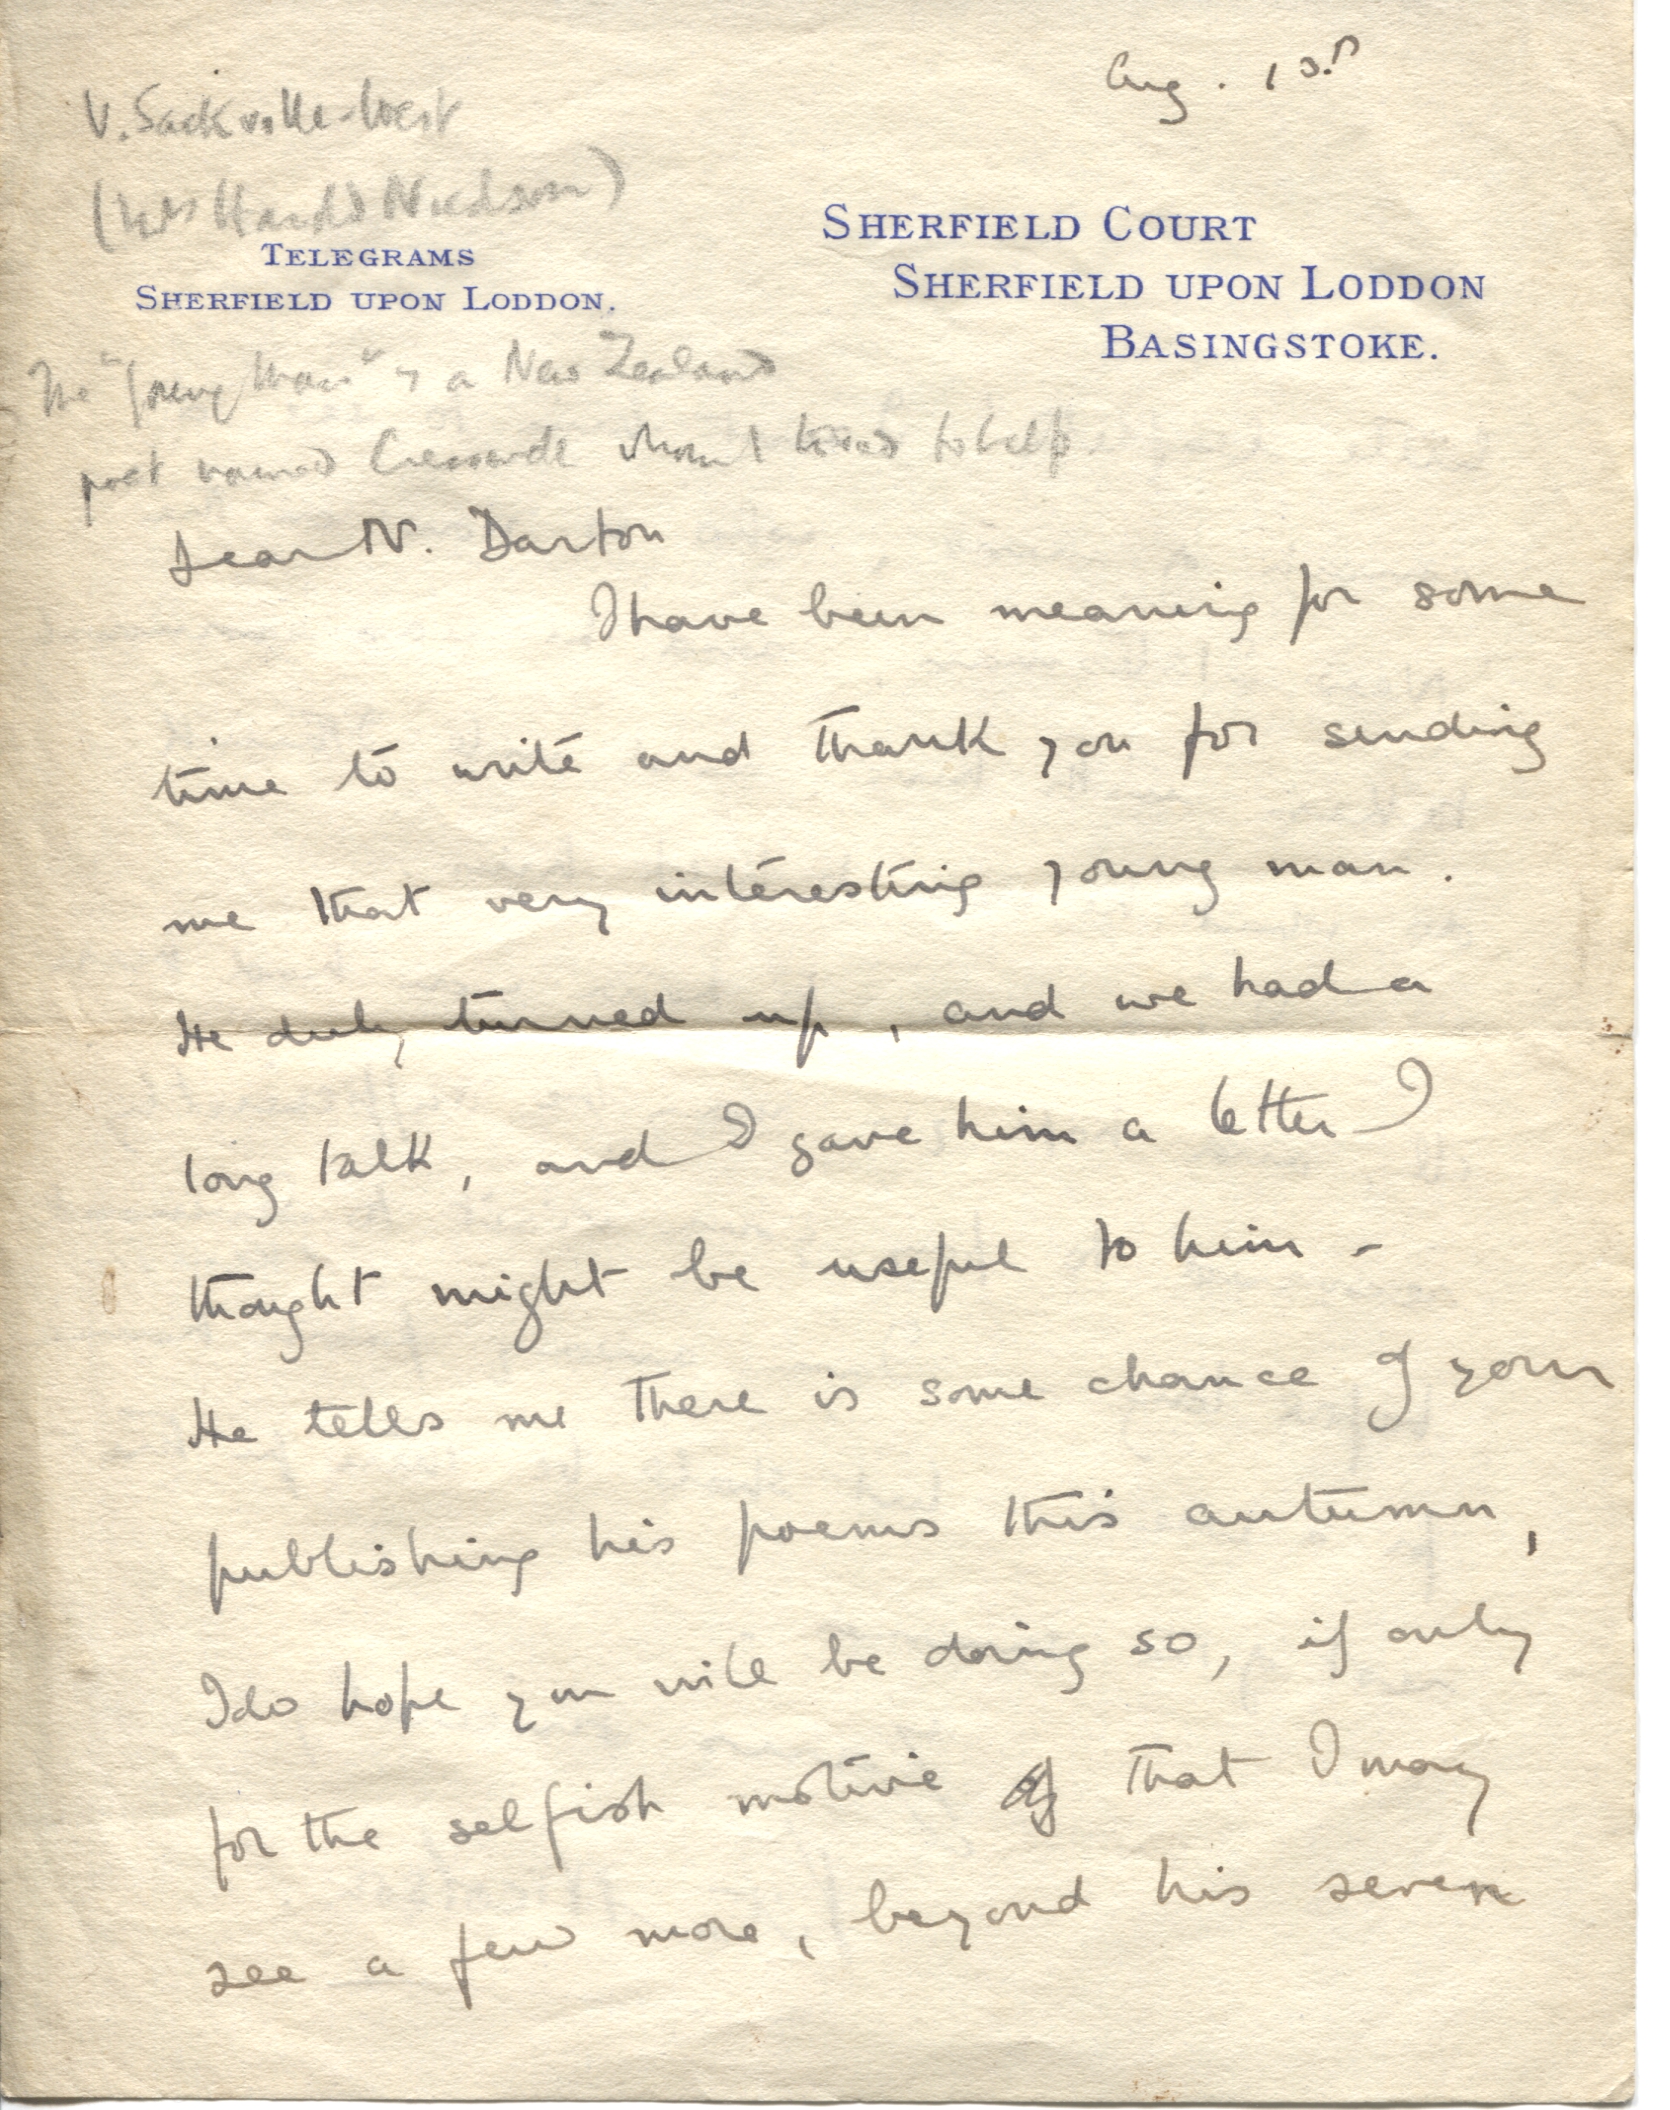 Aug.
V. Sackville-West
(Mrs Harold Nicolson)
TELEGRAMS
SHERFIELD UPON LODDON.
SHERFIELD COURT
SHERFIELD UPON LODDON
BASINGSTOKE.
The "young man" is a New Zealand
poet named whom I tried to help.
Dear Mr. Darton
I have been meaning for some
time to write and thank you for sending
me that very interesting young man.
He duly turned up, and we had a
long talk, and I gave him a letter I
thought might be useful to him -
He tells me there is some chance of your
publishing his poems this autumn,
I do hope you will be doing so, if only
for the selfish motive that I may
see a few more, beyond his seven